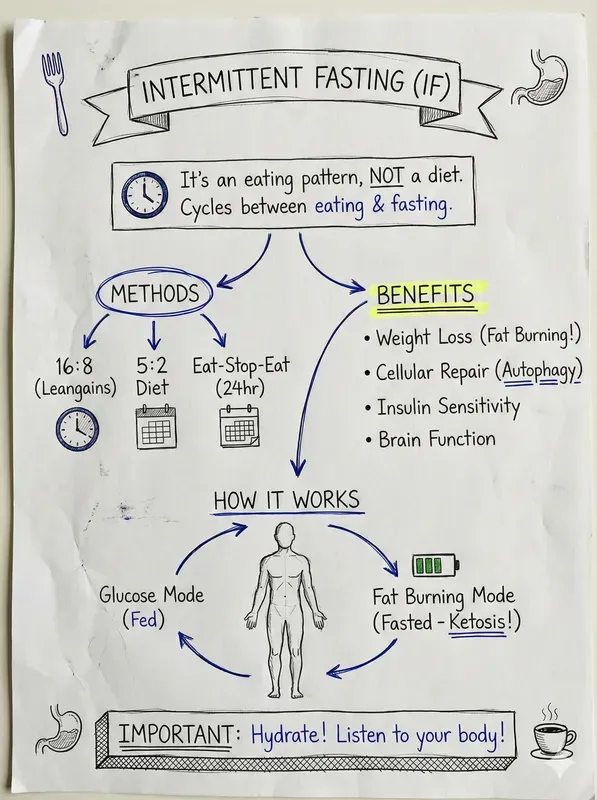 INTERMITTENT FASTING (IF)
It's an eating pattern, NOT a diet.
Cycles between eating & fasting.
METHODS
16:8
(Leangains)
5:2
Diet
Eat-Stop-Eat
(24hr)
BENEFITS
• Weight Loss (Fat Burning!)
• Cellular Repair (Autophagy)
• Insulin Sensitivity
• Brain Function
HOW IT WORKS
Glucose Mode
(Fed)
Fat Burning Mode
(Fasted - Ketosis!)
IMPORTANT: Hydrate! Listen to your body!